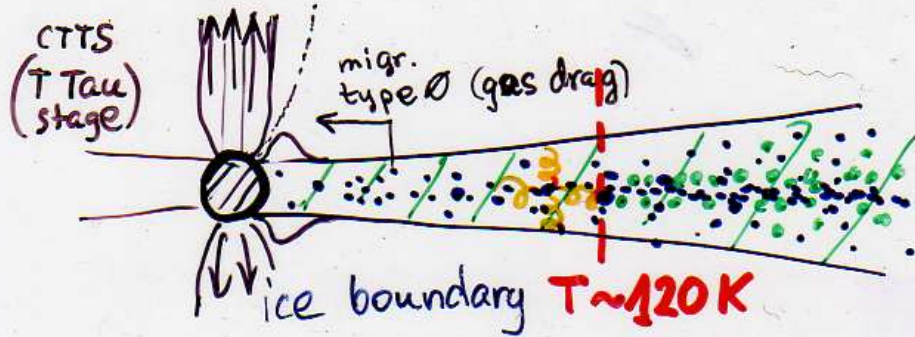 CTTS
(T Tau
stage)
migr.
type Ø (gas drag)
ice boundary T~120 K